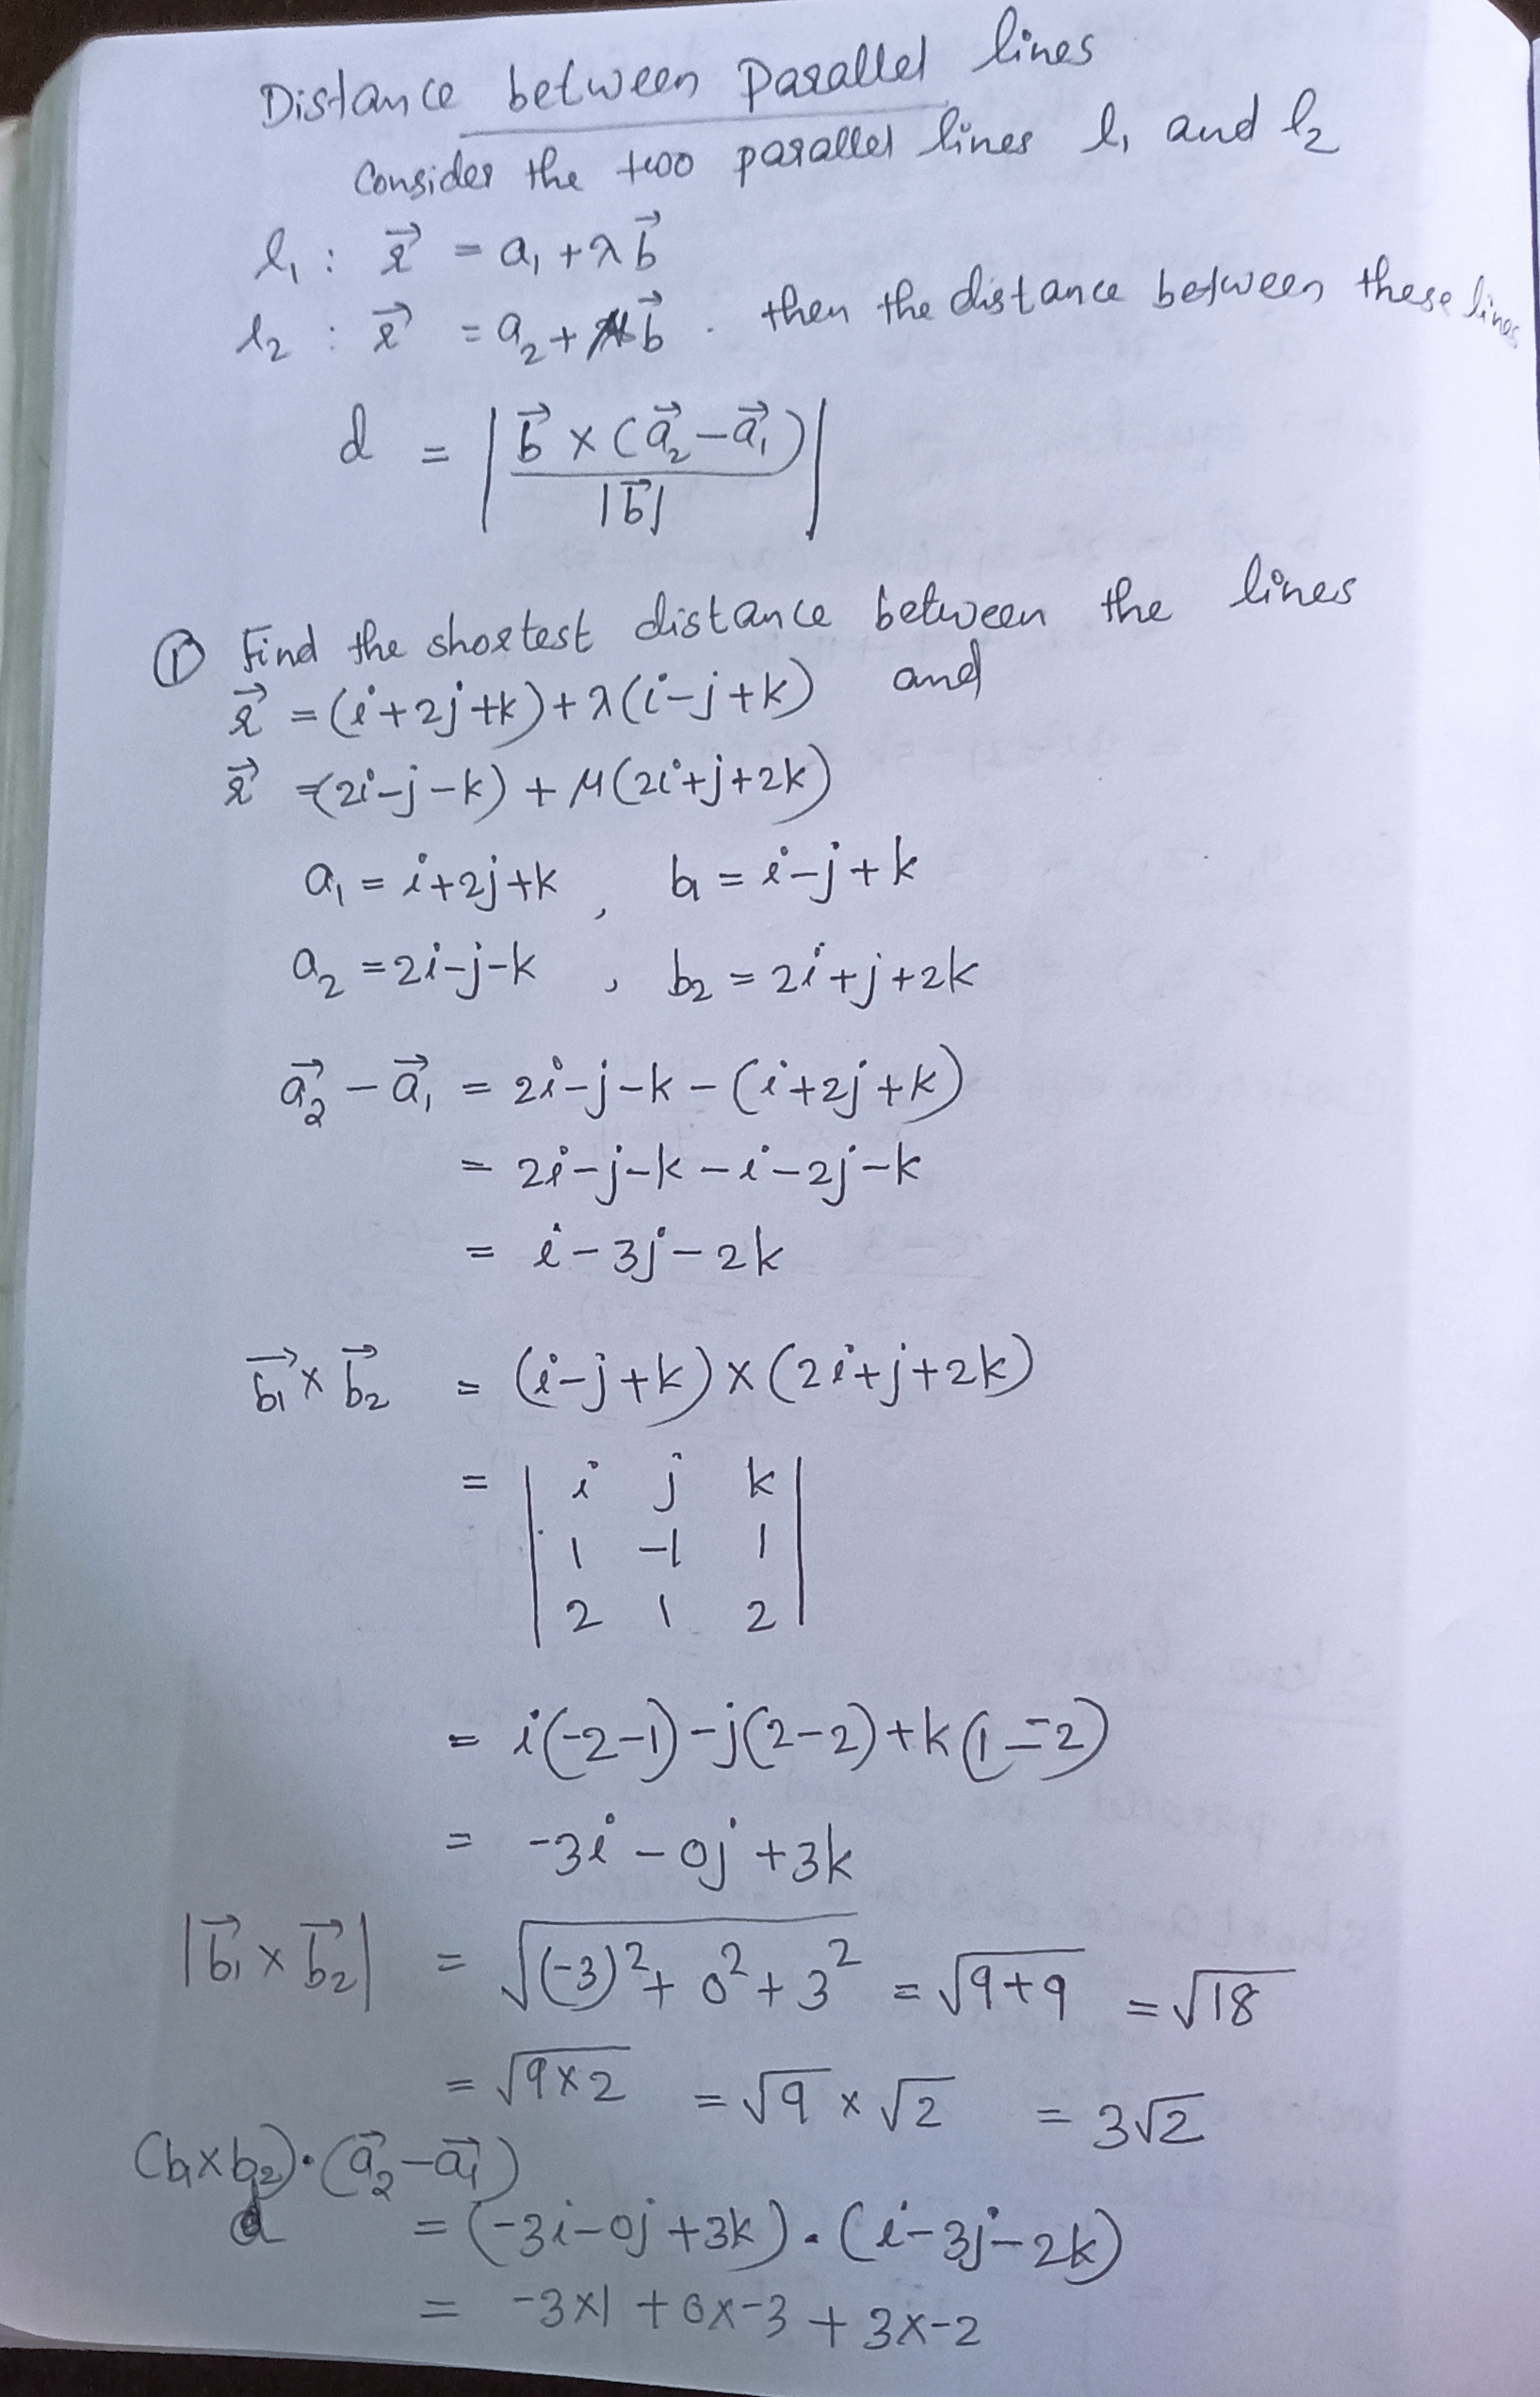 Distance between Parallel lines
Consider the two parallel lines l₁ and l₂
l₁ : r⃗ = a₁ + λb⃗
l₂ : r⃗ = a₂ + μb⃗ . then the distance between these lines
d = | b⃗ × (a⃗₂ − a⃗₁) / |b⃗| |
① Find the shortest distance between the lines
r⃗ = (i+2j+k) + λ(i−j+k) and
r⃗ = (2i−j−k) + μ(2i+j+2k)
a₁ = i+2j+k , b₁ = i−j+k
a₂ = 2i−j−k , b₂ = 2i+j+2k
a⃗₂ − a⃗₁ = 2i−j−k − (i+2j+k)
= 2i−j−k −i−2j−k
= i−3j−2k
b⃗₁ × b⃗₂ = (i−j+k) × (2i+j+2k)
= | i j k
1 −1 1
2 1 2 |
= i(−2−1) −j(2−2) +k(1−−2)
= −3i − 0j + 3k
|b⃗₁ × b⃗₂| = √(−3)² + 0² + 3² = √9+9 = √18
= √9×2 = √9 × √2 = 3√2
(b₁×b₂)·(a⃗₂−a⃗₁)
= (−3i−0j+3k) · (i−3j−2k)
= −3×1 + 0×−3 + 3×−2